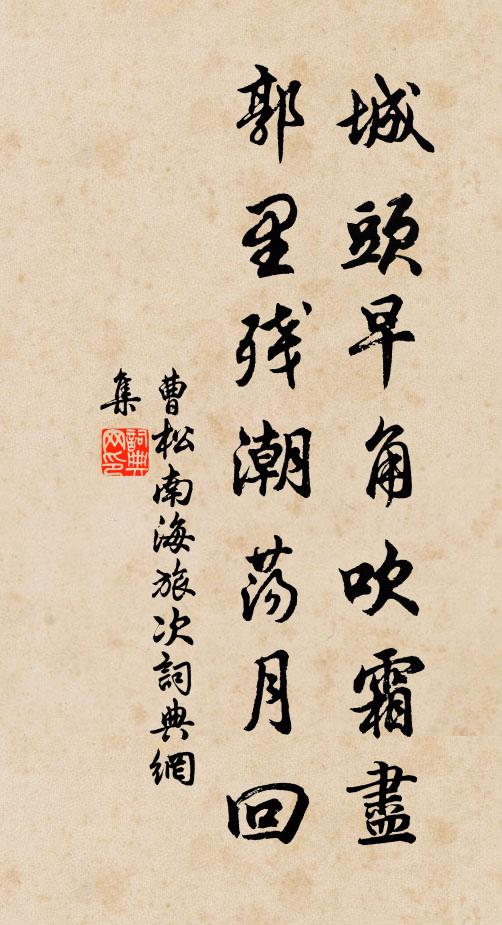 城頭早角吹霜盡
郭里殘潮蕩月回
曹松南海旅次詞典網
集
詞典網印